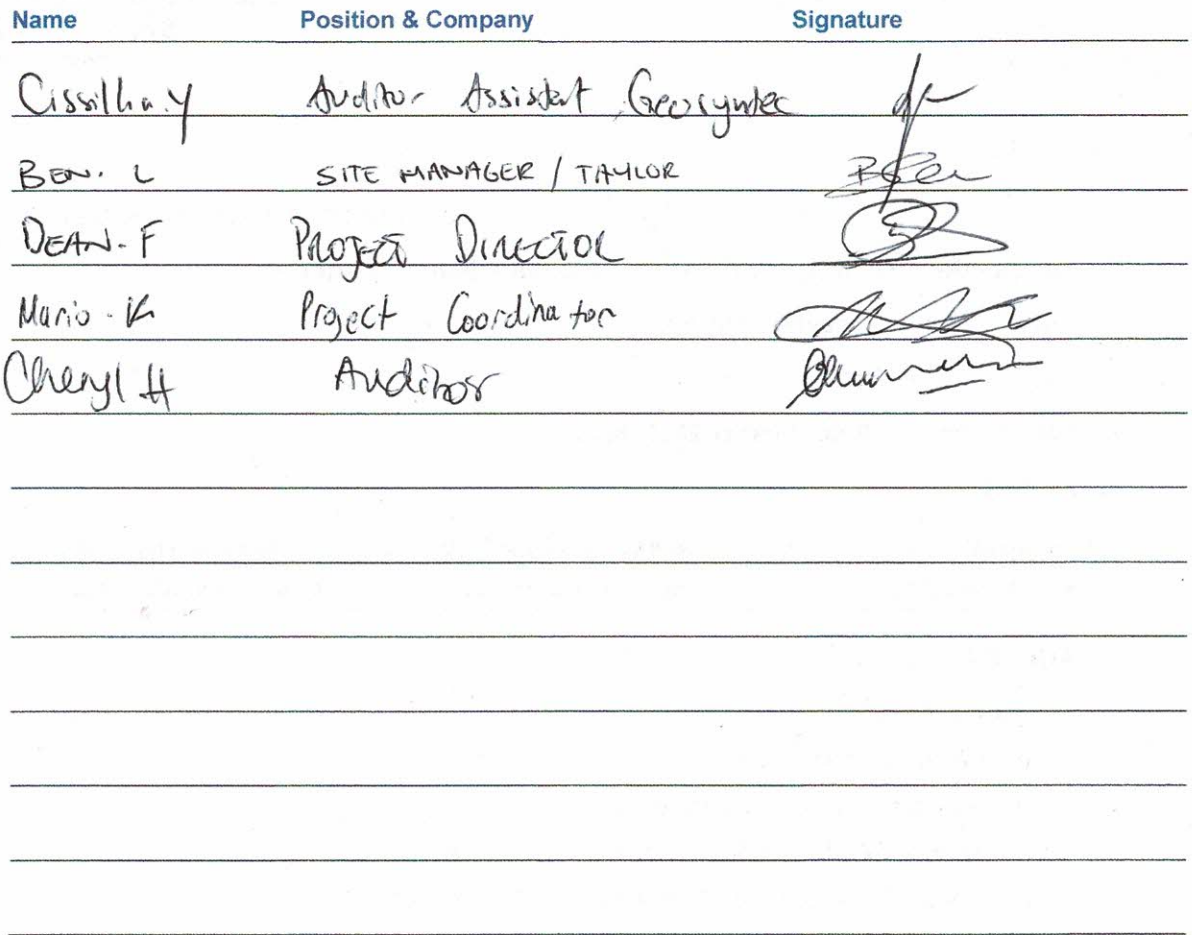 Name Position & Company Signature
Cissilha.Y Auditor Assistant Geosyntec
BEN. L SITE MANAGER / TAYLOR
DEAN. F PROJECT DIRECTOR
Mario. K Project Coordinator
Cheryl H Auditor